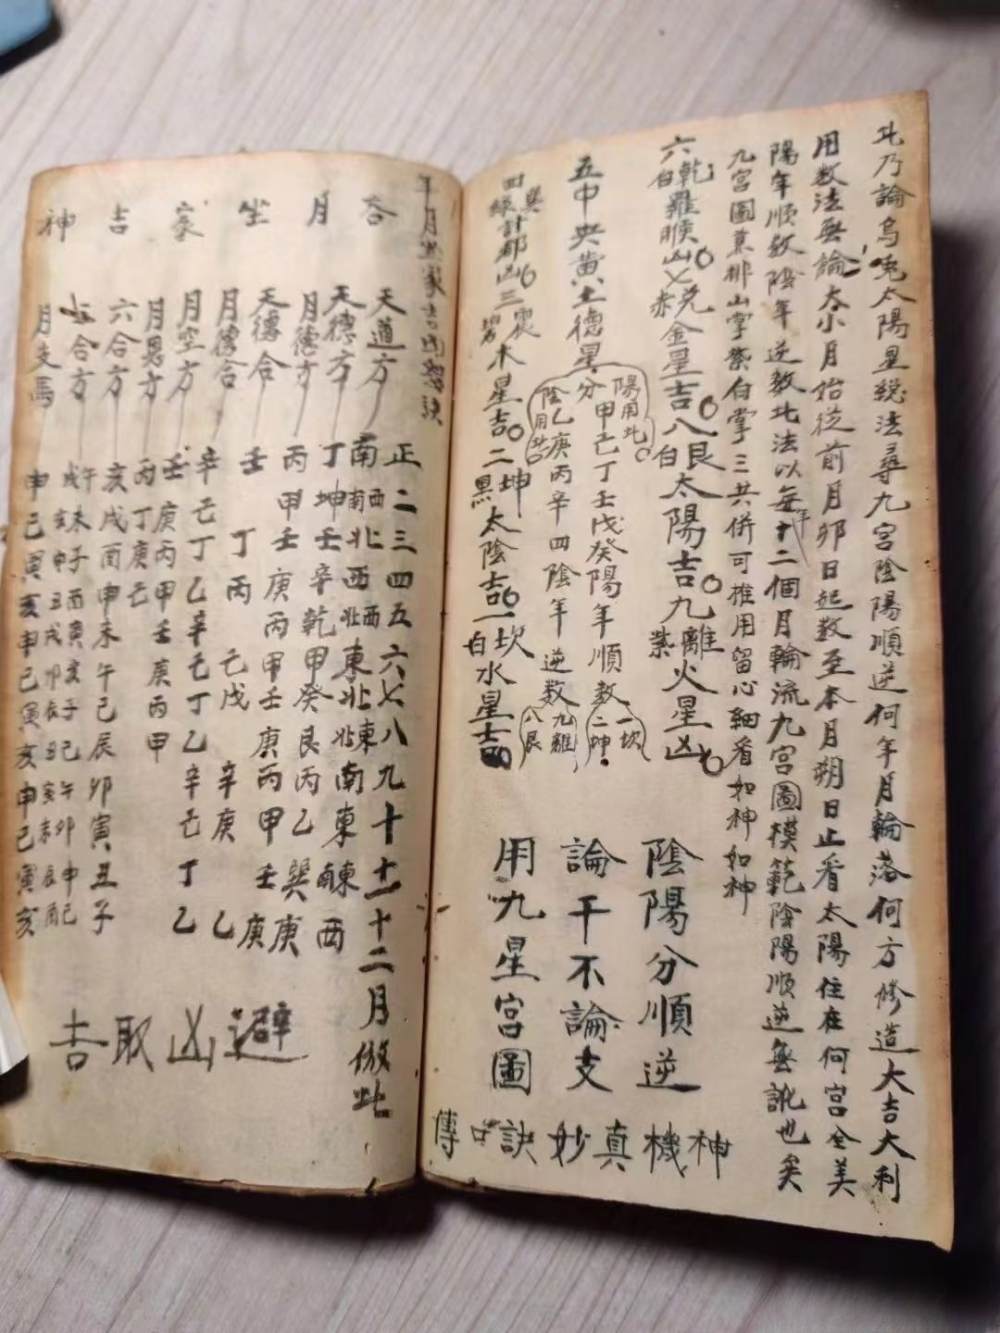 此乃論烏兎太陽星総法尋九宮陰陽順逆何年月輪落何方修造大吉大利
用数法無論大小月始從前月卯日起数至本月朔日止看太陽住在何宮全美
陽年順数陰年逆数此法以每年十二個月輪流九宮圖模範陰陽順逆無訛也矣
九宮圖並排山掌紫白掌三共併可推用留心細看如神如神
六白乾羅睺凶七赤兌金星吉八白艮太陽吉九紫離火星凶
五中央黄土德星
分
陽用此
甲己丁壬戊癸陽年順数
一坎
二坤
陰用此
乙庚丙辛四陰年逆数
九離
八艮
四綠巽計都凶三碧震木星吉二黑坤太陰吉一白坎水星吉
陰陽分順逆
論干不論支
用九星宮圖
神機真妙訣口傳
年月坐家吉凶
訣
各月坐家吉神
正二三四五六七八九十十一十二月倣此
天道方 南西南北西西北東北北東南東東南西
天德方 丁坤壬辛乾甲癸艮丙乙巽庚
月德方 丙甲壬庚丙甲壬庚丙甲壬庚
天德合 壬丁丙己戊辛庚乙
月德合 辛己丁乙辛己丁乙辛己丁乙
月空方 壬庚丙甲壬庚丙甲
月恩方 丙丁庚己
六合方 亥戌酉申未午巳辰卯寅丑子
三合方
午戌
未亥
申子
酉丑
戌寅
亥卯
子辰
巳
午寅
卯未
申辰
巳酉
月支馬 申巳寅亥申巳寅亥申巳寅亥
避凶取吉